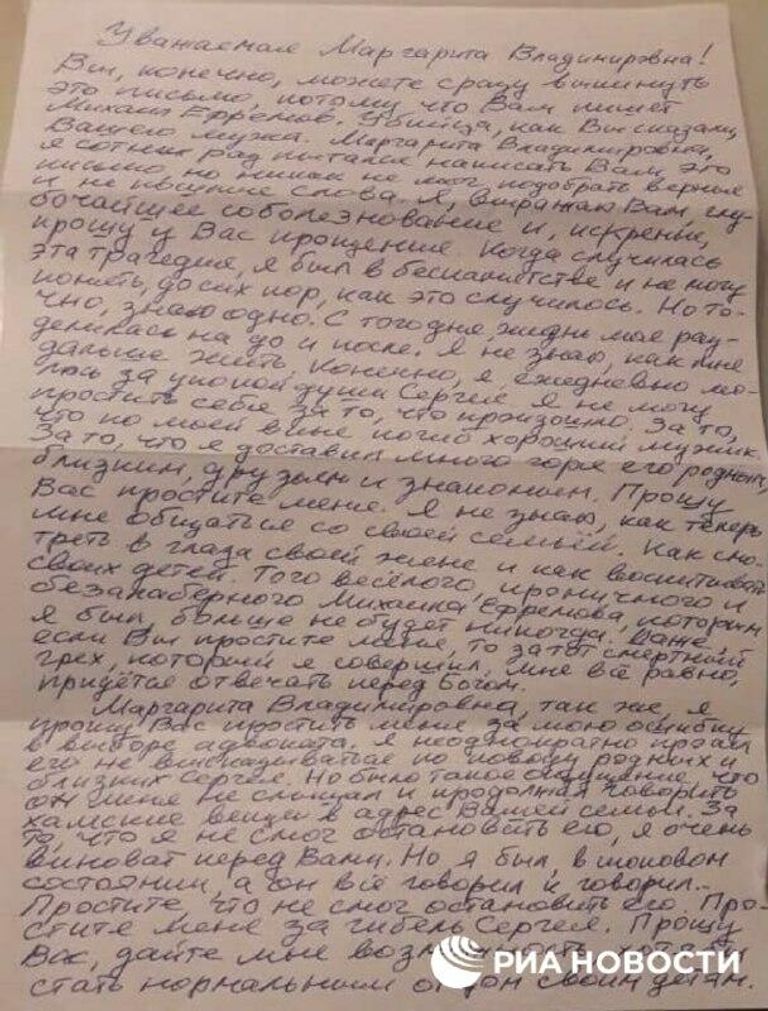 Уважаемая Маргарита Владимировна!
Вы, конечно, можете сразу выкинуть
это письмо, потому что Вам пишет
Михаил Ефремов. Убийца, как Вы сказали,
Вашего мужа. Маргарита Владимировна,
я сотни раз пытался написать Вам это
письмо, но никак не мог подобрать верные
и не пошлые слова. Я, выражаю Вам, глу-
бочайшее соболезнование и, искренне,
прошу у Вас прощения. Когда случилась
эта трагедия, я был в беспамятстве и не могу
понять, до сих пор, как это случилось. Но то-
чно, знаю одно. С того дня, жизнь моя раз-
делилась на до и после. Я не знаю, как мне
дальше жить. Конечно, я, ежедневно мо-
люсь за упокой души Сергея. Я не могу
простить себе за то, что произошло. За то,
что по моей вине погиб хороший мужик.
За то, что я доставил много горя его родным,
близким, друзьям и знакомым. Прошу
Вас простите меня. Я не знаю, как теперь
мне общаться со своей семьёй. Как смо-
треть в глаза своей жене и как воспитывать
своих детей. Того весёлого, ироничного и
безалаберного Михаила Ефремова, которым
я был, больше не будет никогда. Даже,
если Вы простите меня, то за тот смертный
грех, который я совершил, мне всё равно,
придётся отвечать перед Богом.
Маргарита Владимировна, так же, я
прошу Вас простить меня за мою ошибку
в выборе адвоката. Я неоднократно просил
его не высказываться по поводу родных и
близких Сергея. Но было такое ощущение, что
он меня не слышал и продолжал говорить
хамские вещи в адрес Вашей семьи. За
то, что я не смог остановить его, я очень
виноват перед Вами. Но я был, в шоковом
состоянии, а он всё говорил и говорил..
Простите, что не смог остановить его. Про-
стите меня за гибель Сергея. Прошу
Вас, дайте мне
стать нормальным отцом своим детям.
РИА НОВОСТИ